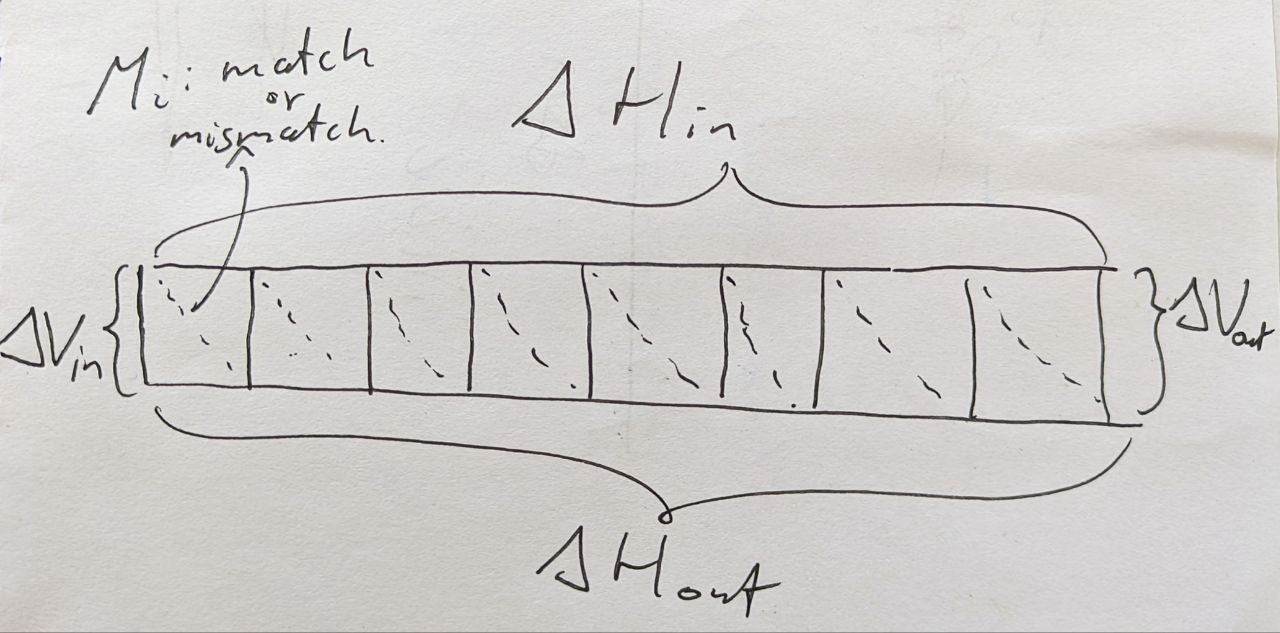 Mi: match
or
mismatch.
ΔHin
ΔVin
ΔVout
ΔHout